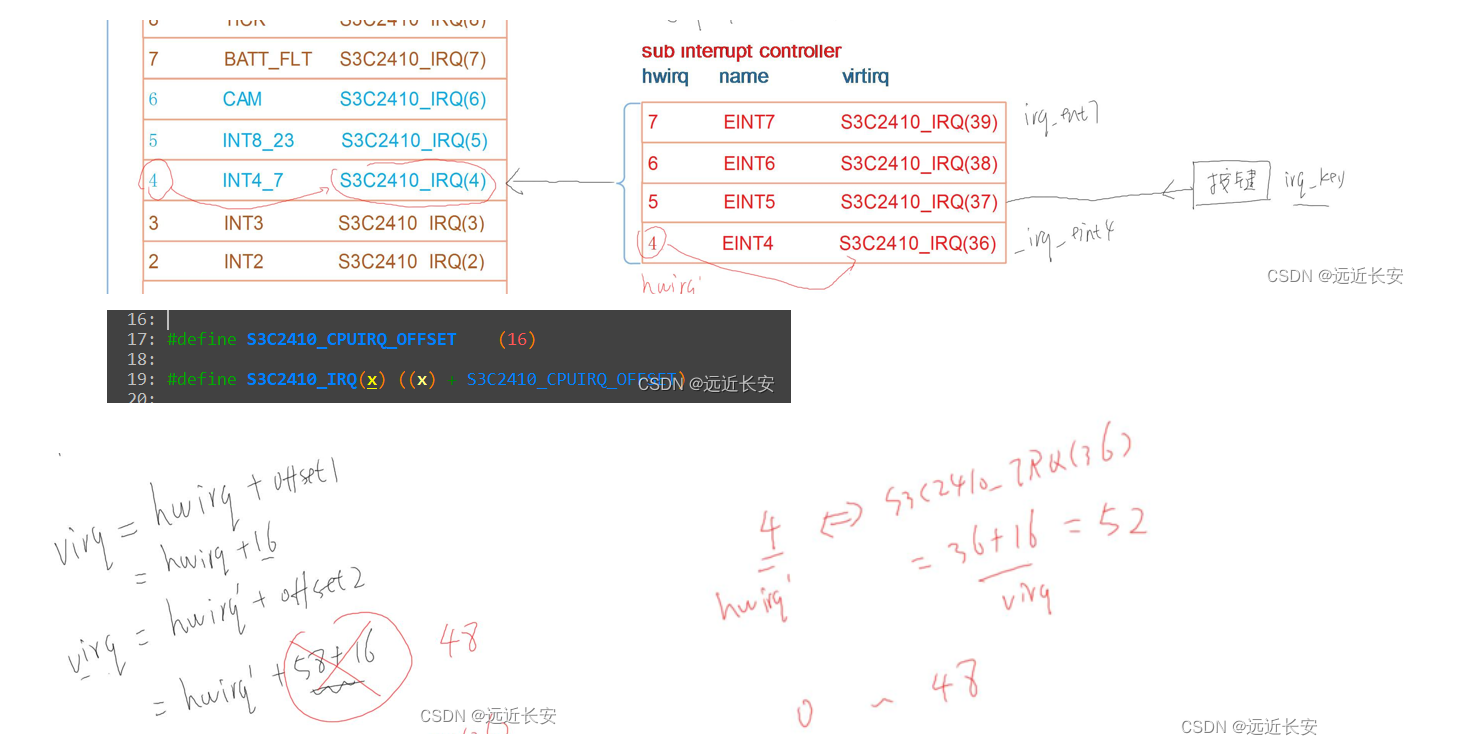 7 BATT_FLT S3C2410_IRQ(7)
6 CAM S3C2410_IRQ(6)
5 INT8_23 S3C2410_IRQ(5)
4 INT4_7 S3C2410_IRQ(4)
3 INT3 S3C2410 IRQ(3)
2 INT2 S3C2410 IRQ(2)
sub interrupt controller
hwirq name virtirq
7 EINT7 S3C2410_IRQ(39)
6 EINT6 S3C2410_IRQ(38)
5 EINT5 S3C2410_IRQ(37)
4 EINT4 S3C2410_IRQ(36)
hwirq'
irq_eint7
按键 irq_key
_irq_eint4
CSDN @远近长安
16:
17: #define S3C2410_CPUIRQ_OFFSET (16)
18:
19: #define S3C2410_IRQ(x) ((x) + S3C2410_CPUIRQ_OFFSET)
20:
CSDN @远近长安
virq = hwirq + offset1
= hwirq + 16
virq = hwirq' + offset2
= hwirq' + 58+16 48
CSDN @远近长安
4 <=> S3C2410_IRQ(36)
hwirq' = 36+16 = 52
virq
0 ~ 48
CSDN @远近长安